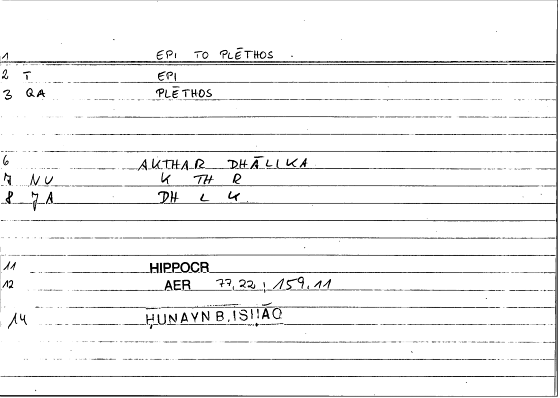 1 EPI TO PLĒTHOS .
2 T EPI
3 QA PLĒTHOS
6 AKTHAR DHĀLIKA
7 NU K TH R
8 JA DH L K
11 HIPPOCR
12 AER 77,22 ; 159,11
14 ḤUNAYN B. ISḤĀQ